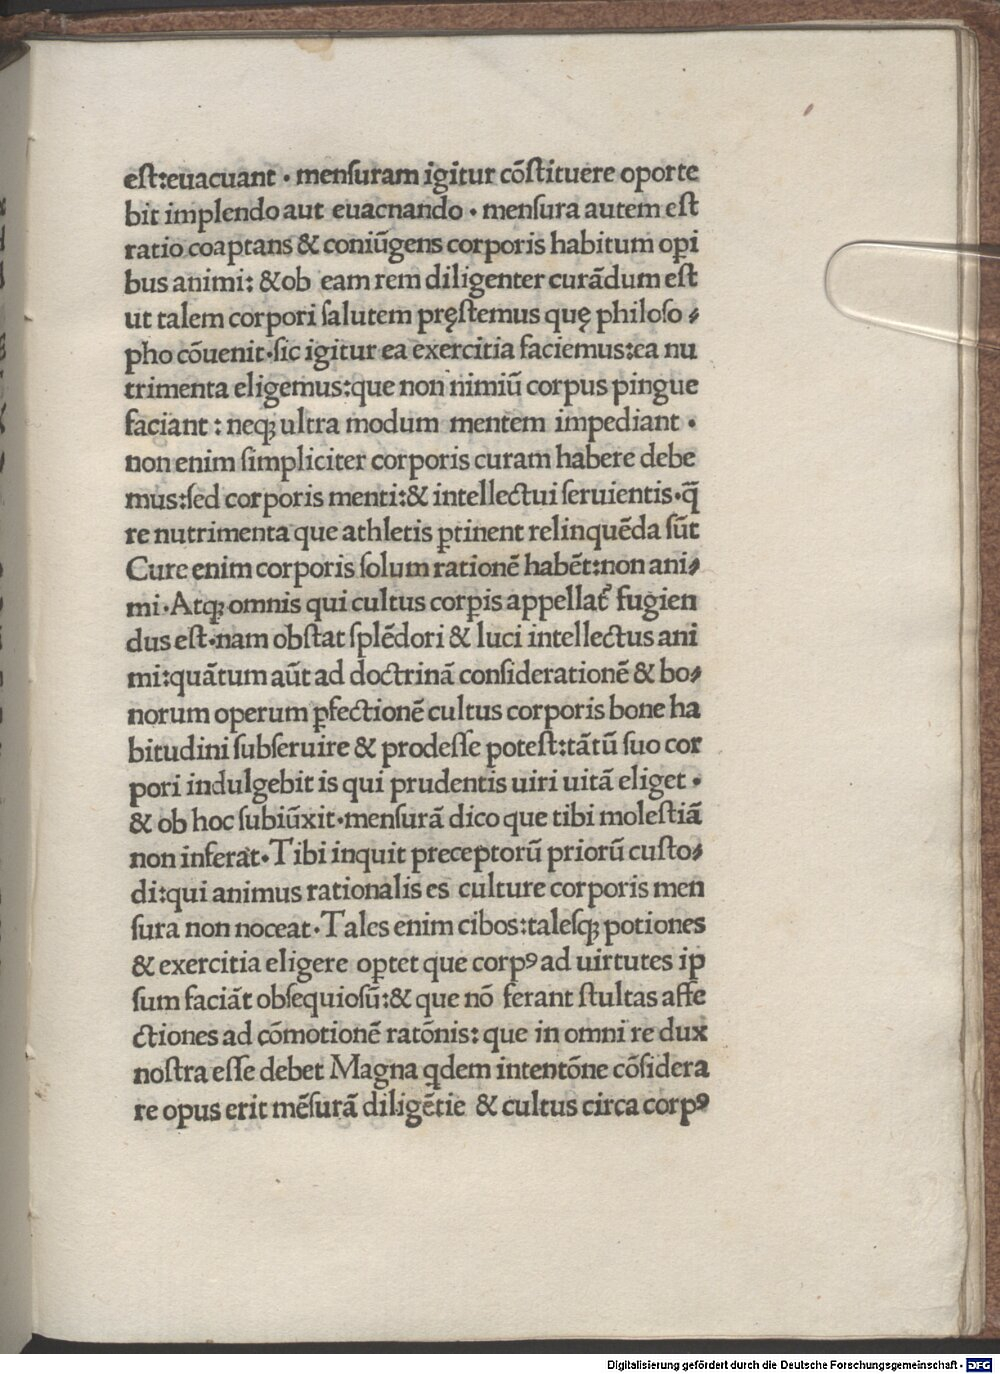 eſt:euacuant · menſuram igitur cõſtituere oporte
bit implendo aut euacnando · menſura autem eſt
ratio coaptans & coniũgens corporis habitum oꝑi
bus animi: & ob eam rem diligenter curãdum eſt
ut talem corpori ſalutem pręſtemus quę philoſo⸗
pho cõuenit·ſic igitur ea exercitia faciemus:ea nu
trimenta eligemus:que non nimiũ corpus pingue
faciant : neqꝫ ultra modum mentem impediant ·
non enim ſimpliciter corporis curam habere debe
mus:ſed corporis menti:& intellectui ſeruientis·q̃
re nutrimenta que athletis ꝑtinent relinquẽda ſũt
Cure enim corporis ſolum rationẽ habẽt:non ani⸗
mi·Atqꝫ omnis qui cultus corꝑis appellat᷑ fugien
dus eſt·nam obſtat ſplẽdori & luci intellectus ani
mi:quãtum aũt ad doctrinã conſiderationẽ & bo⸗
norum operum ꝑfectionẽ cultus corporis bone ha
bitudini ſubſeruire & prodeſſe poteſt:tãtũ ſuo cor
pori indulgebit is qui prudentis uiri uitã eliget ·
& ob hoc ſubiũxit·menſurã dico que tibi moleſtiã
non inferat·Tibi inquit preceptorũ priorũ cuſto⸗
di:qui animus rationalis es culture corporis men
ſura non noceat·Tales enim cibos:taleſqꝫ potiones
& exercitia eligere oꝑtet que corpꝰ ad uirtutes ip
ſum faciãt obſequioſũ:& que nõ ferant ſtultas affe
ctiones ad cõmotionẽ ratõnis: que in omni re dux
noſtra eſſe debet Magna q̇dem intentõne cõſidera
re opus erit mẽſurã diligẽtie & cultus circa corpꝰ
Digitalisierung gefördert durch die Deutsche Forschungsgemeinschaft · DFG